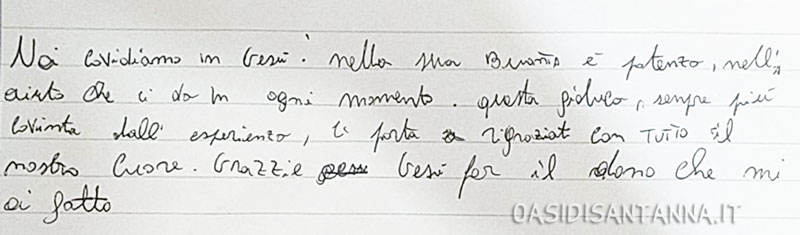 Noi Covidiamo in Gesù: nella sua Buontà è potenza, nell'
aiuto che ci da in ogni momento. questa fiduco, sempre più
Covinta dall' esperienzo, ti porta a rigraziat con TUTTO il
nostro Cuore. Grazzie Gesù per il dono che mi
ai fatto
OASIDISANTANNA.IT